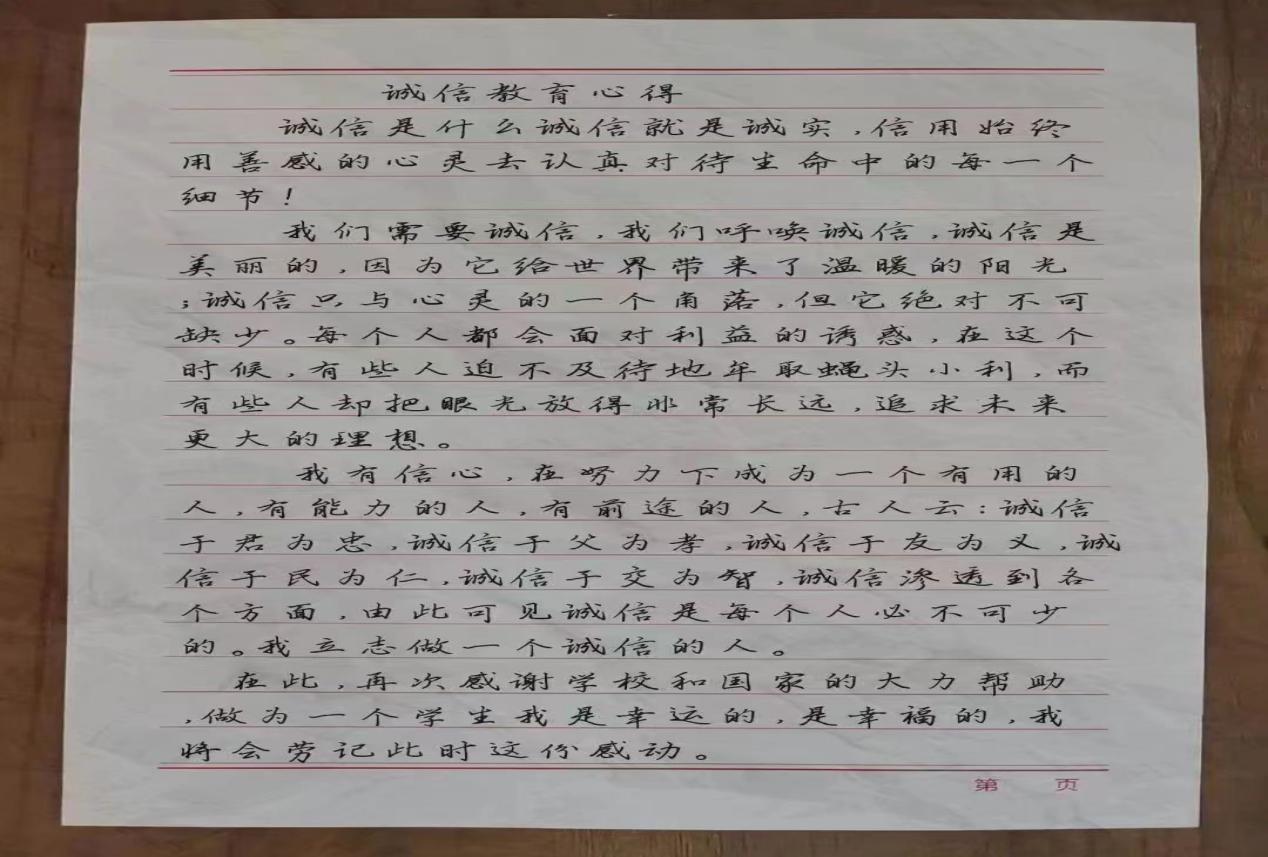 诚信教育心得
诚信是什么诚信就是诚实，信用始终
用善感的心灵去认真对待生命中的每一个
细节！
我们需要诚信，我们呼唤诚信，诚信是
美丽的，因为它给世界带来了温暖的阳光
；诚信只与心灵的一个角落，但它绝对不可
缺少。每个人都会面对利益的诱惑，在这个
时候，有些人迫不及待地年取蝇头小利，而
有些人却把眼光放得非常长远，追求未来
更大的理想。
我有信心，在努力下成为一个有用的
人，有能力的人，有前途的人，古人云：诚信
于君为忠，诚信于父为孝，诚信于友为义，诚
信于民为仁，诚信于交为智，诚信渗透到各
个方面，由此可见诚信是每个人必不可少
的。我立志做一个诚信的人。
在此，再次感谢学校和国家的大力帮助
，做为一个学生我是幸运的，是幸福的，我
将会劳记此时这份感动。
第 页